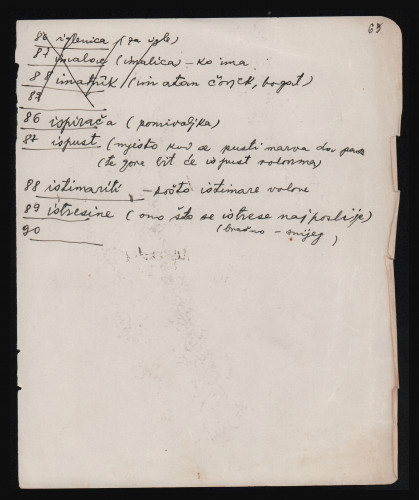 63
86 iglenica (za igle)
87 imaloc (imalica) - ko ima
88 imatnik (imatan čovjek, bogat)
89
86 ispirača (pomivaljka)
87 ispust (mjesto kud se pusti marva da pase
(te gore bit će ispust volovima)
88 istimariti - pošto istimare volove
89 istresine (ono što se istrese najposlije)
90 (brašno - snijeg)